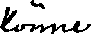 Könne